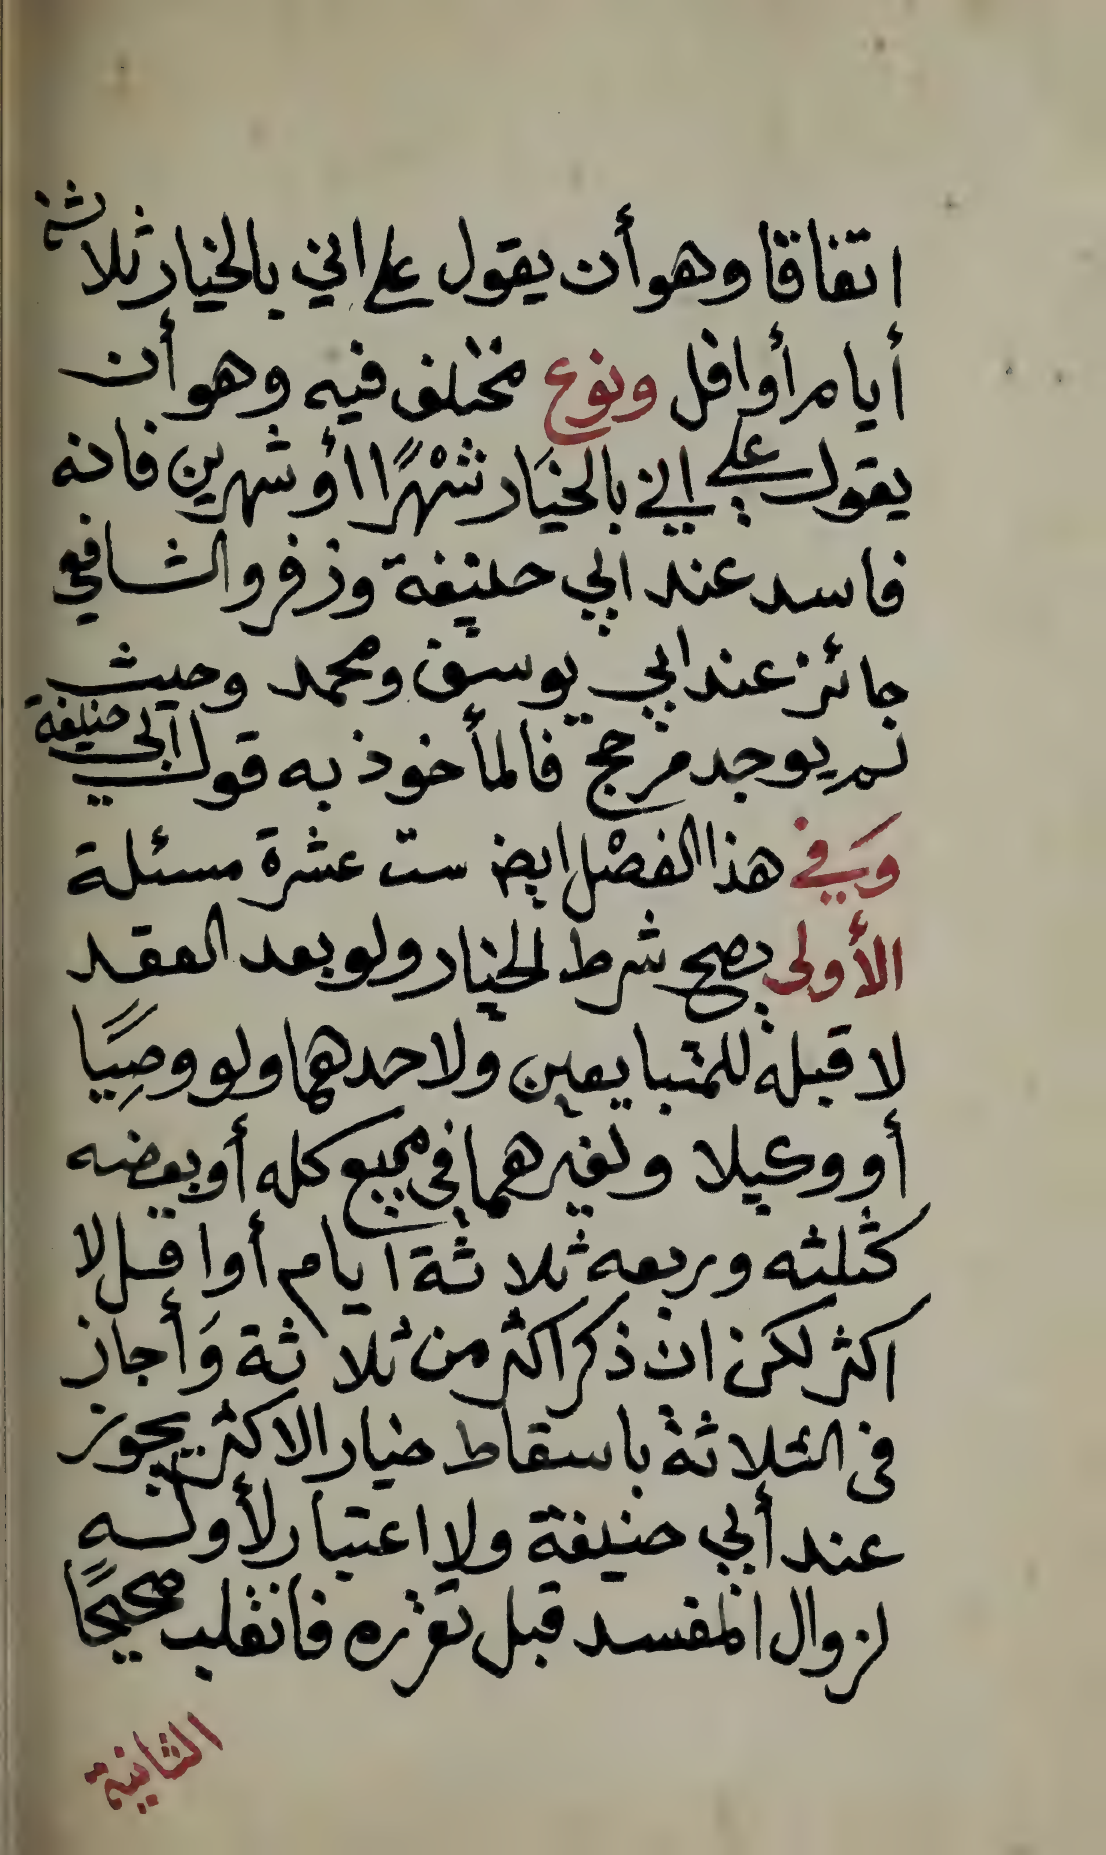 اتفاقا وهو أن يقول على اني بالخيار ثلاثة
أيام أو اقل ونوع مختلف فيه وهو أن
يقول على اني بالخيَار شهْرًا أو شهرين فانه
فاسد عند ابي حنيفة وزفر والشافعي
جائز عند ابي يوسف ومحمد وحيث
لم يوجد مرجح فالمأخوذ به قول ابي حنيفة
وَفي هذا الفصْل ايض ست عشرة مسئلة
الأولى يصح شرط الخيار ولو بعد العقد
لا قبله للمتبايعين ولاحدهما ولو وصِيًا
أو وكيلا ولغيرهما في مبيع كله أو بعضه
كثلثه وربعه ثلاثة ايام أو اقل لا
اكثر لكن ان ذكر اكثر من ثلاثة وَأجاز
في الثلاثة باسقاط خيار الاكثر يجوز
عند أبي حنيفة ولا اعتبار لأوله
لزوال المفسد قبل تقرره فانقلب صحيحًا
الثانية